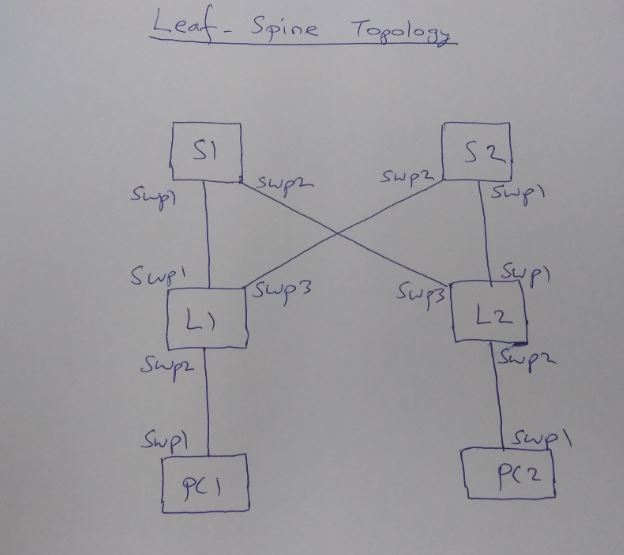 Leaf-Spine Topology
S1
S2
swp1
swp2
swp2
swp1
swp1
swp3
swp3
swp1
L1
L2
swp2
swp2
swp1
swp1
PC1
PC2